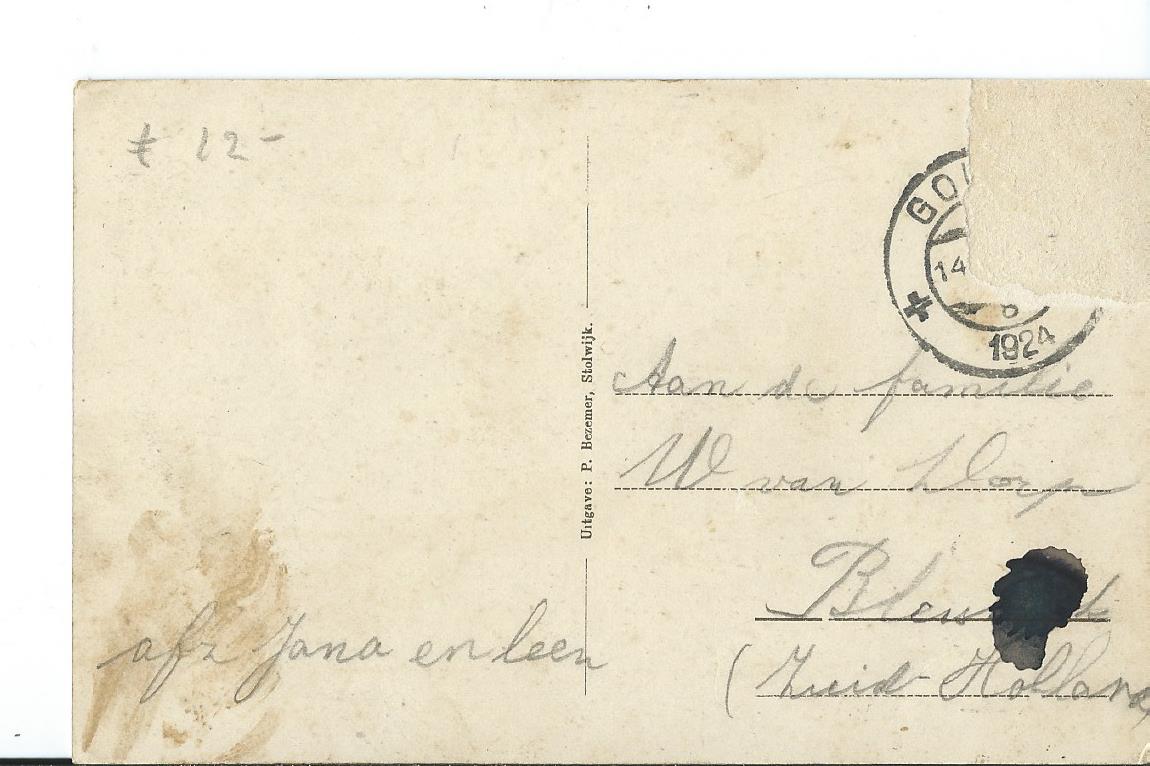 12-
GO
14
8
1924
Uitgave: P. Bezemer, Stolwijk.
Aan de familie
W van Dorp
(Zuid-Holland
afz Jana en leen